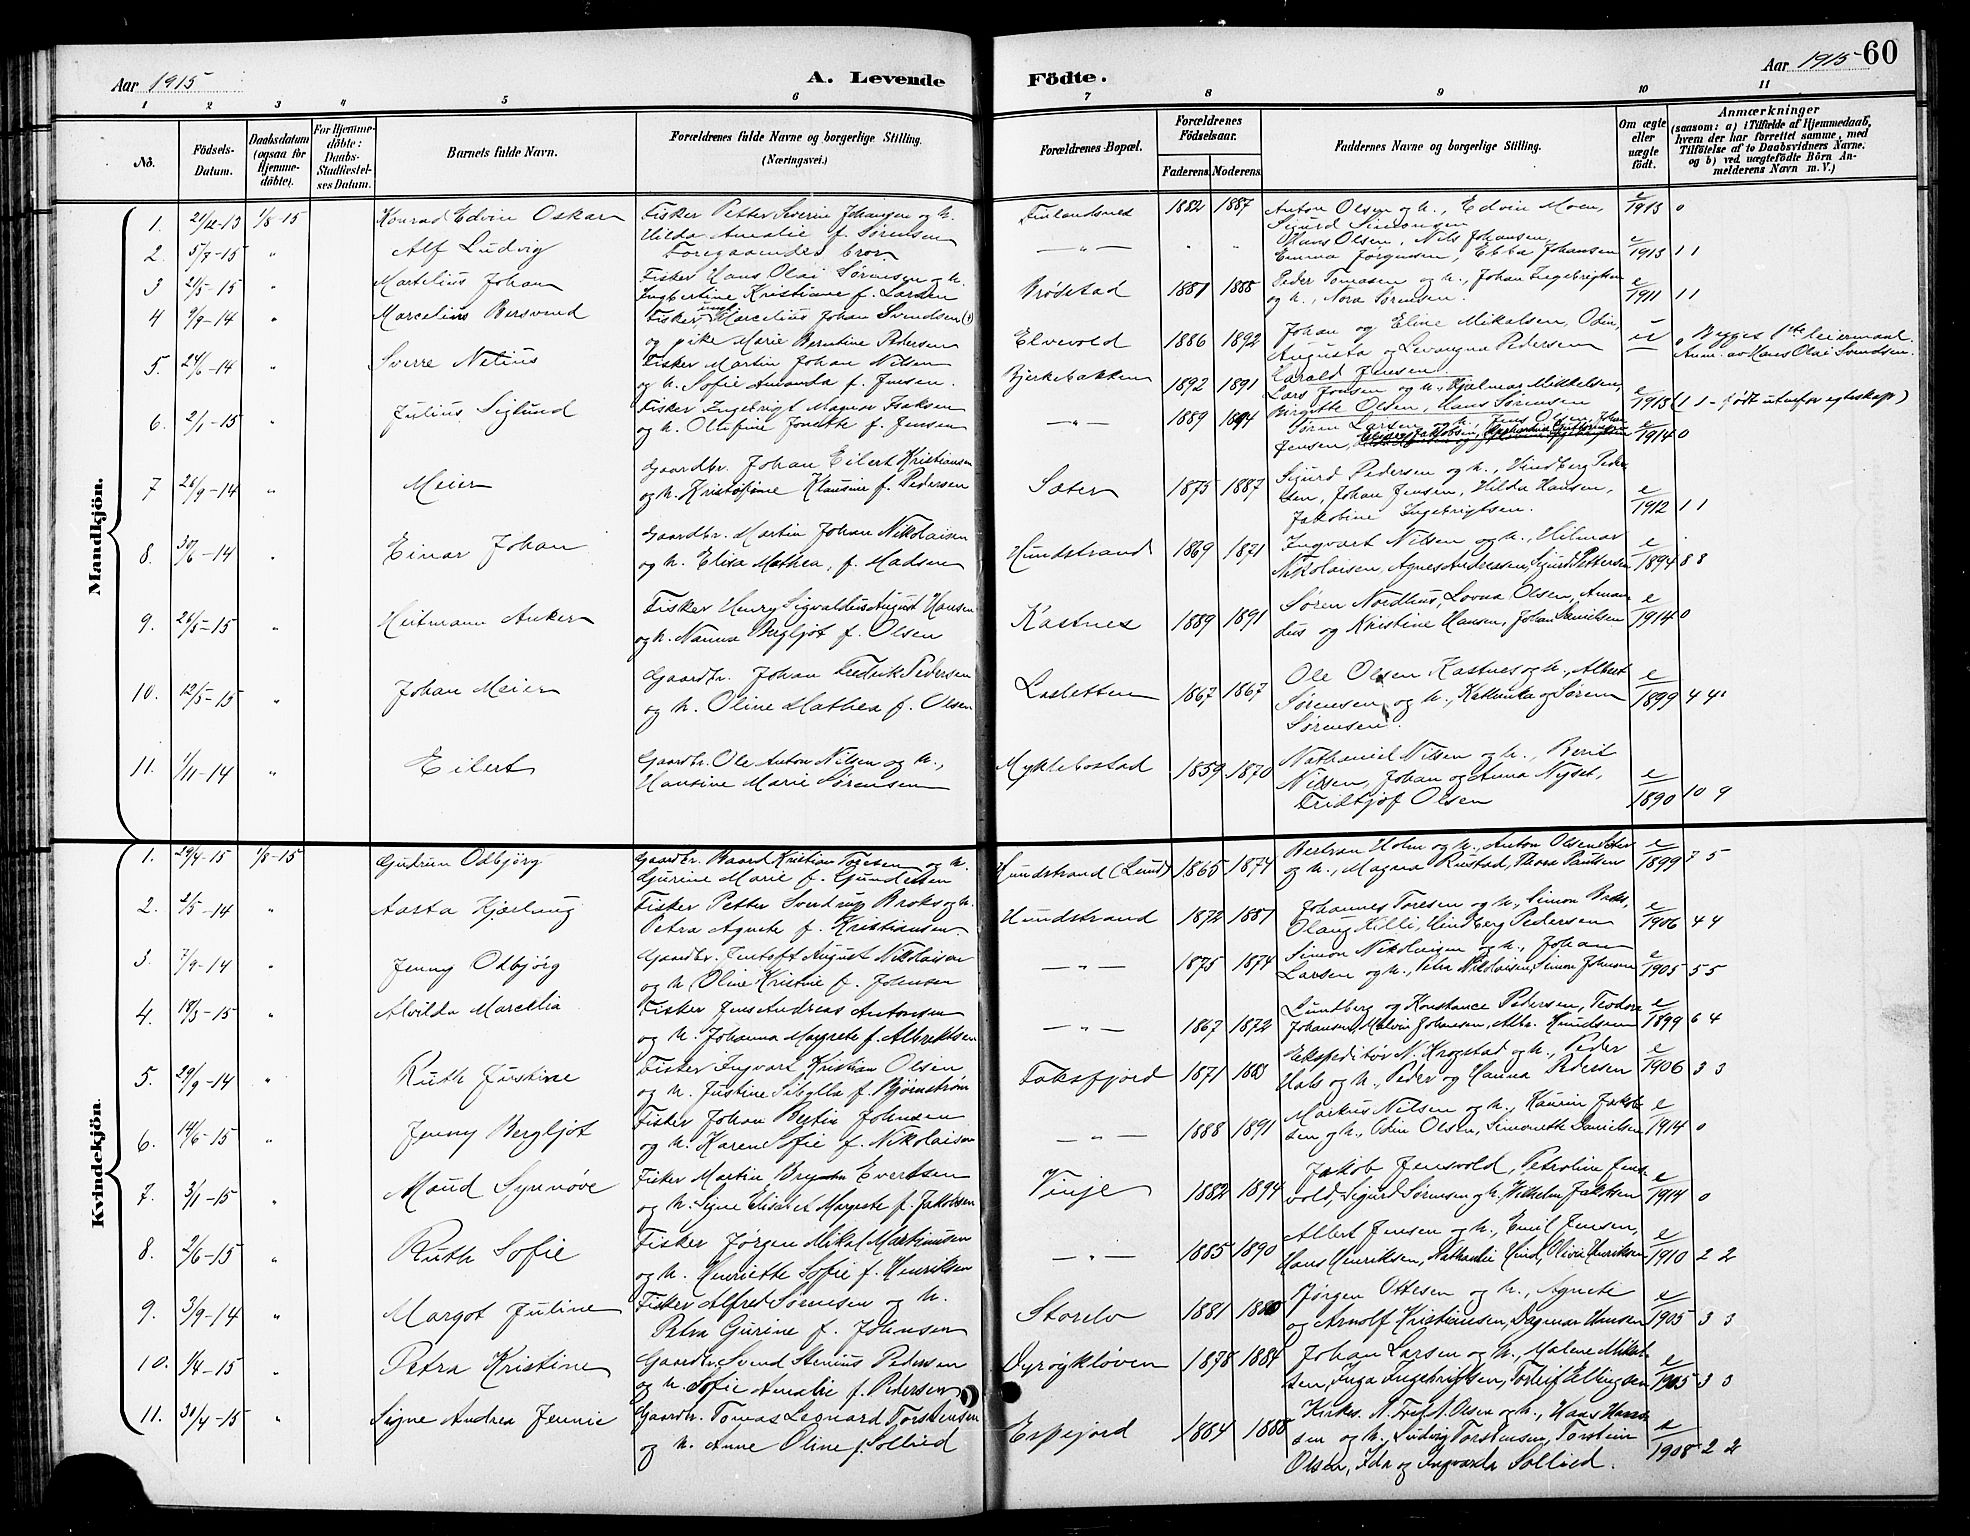 Aar 1915
A. Levende
1 2 3 4 5 6
No.
Födsels-
Datum.
Daabsdatum
(ogsaa for
Hjemme-
döbte).
For Hjemme-
döbte:
Daabs-
Stadfæstel-
ses Datum.
Barnets fulde Navn.
Forældrenes fulde Navne og borgerlige Stilling.
(Næringsvei.)
Mandkjön.
1. 21/12-13 1/8-15 Konrad Edvin Oskar Fisker Petter Severin Johansen og h.
Hilda Amalie f. Sørensen
2. 5/7-15 " Alf Ludvig Foregaaendes bror
3 2/5-15 " Martelius Johan Fisker Hans Olai Sørensen og h.
Ingbertine Kristiane f. Larsen
4 9/9-14 " Marcelius Bersvend Fisker ungk. Marcelius Johan Svendsen (†)
og pike Marie Berntine Pedersen
5. 24/6-14 " Sverre Nelius Fisker Martin Johan Nilsen
og h. Sofie Amanda f. Jensen.
6. 2/1-15 " Julius Siglund Fisker Ingebrigt Magnar Isaksen
og h. Ottefine Jonette f. Jensen
7 26/9-14 " Meier Gaardbr. Johan Eilert Kristiansen
og h. Kristofine Klausine f. Pedersen
8. 30/6-14 " Einar Johan Gaardbr. Martin Johan Nikolaisen
og h. Elisa Mathea, f. Madsen
9. 26/5-15 " Heitmann Anker Fisker Henry Sigvaldius August Hansen
og h. Nanna Bergljot f. Olsen
10. 12/5-15 " Johan Meier Gaardbr. Johan Fredrik Pedersen
og h. Oline Mathea f. Olsen
11. 1/11-14 " Eilert Gaardbr. Ole Anton Nilsen og h.,
Hansine Marie Sørensen
Kvindekjön.
1. 29/4-15 1/8-15 Gudrun Odbjörg Gaardbr. Baard Kristian Toresen og h.
Gjurine Marie f. Gundersen
2. 2/5-14 " Aasta Kjærlaug Fisker Petter Sverdrup Broks og h.
Petra Agnete f. Kristiansen.
3. 7/9-14 " Jenny Odbjörg Gaardbr. Jentoft August Nikolaisen
og h. Oline Kristine f. Johnsen
4. 18/3-15 " Alvilda Marcelia Fisker Jens Andreas Antonsen
og h. Johanna Margrete f. Albrektsen
5. 29/9-14 " Ruth Justine Fisker Ingvart Kristian Olsen
og h. Justine Sibylla f. Bjørnstrøm
6. 14/6-15 " Jenny Bergljot Fisker Johan Bertin Johnsen
og h. Karen Sofie f. Nikolaisen
7. 3/11-15 " Maud Synnöve Fisker Martin Evertsen
og h. Signe Elisabet Margrete f. Jakobsen
8. 2/6-15 " Ruth Sofie Fisker Jørgen Mikal Markussen
og h. Henriette Sofie f. Henriksen
9. 3/9-14 " Margot Juline Fisker Alfred Sørensen og h.
Petra Gurine f. Johnsen
10. 1/4-15 " Petra Kristine Gaardbr. Svend Stenius Pedersen
og h. Sofie Amalie f. Pedersen
11. 30/4-15 " Signe Andrea Jennie Gaardbr. Tomas Leonard Torstensen
og h. Anne Oline f. Sollied
Födte.
Aar 1915 60
7 8 9 10 11
Forældrenes Bopæl.
Forældrenes
Födselsaar.
Faderens. Moderens.
Faddernes Navne og borgerlige Stilling.
Om ægte
eller
uægte
födt.
Anmærkninger
(saasom: a) i Tilfælde af Hjemmedaab,
hvem der har forrettet samme, med
Tilföielse af to Daabsvidners Navne.
og b) ved uægtefödte Börn An-
melderens Navn m. V.)
Finlandsnes 1882 1887 Anton Olsen og h., Edvin Moen, e/1913 0
Sigurd Simonsen
— " — " " Hans Olsen, Nils Johansen, e/1913 1 1
Emma Jørgensen, Ebba Johansen
Brøstad 1881 1888 Peder Tomasen og h., Johan Ingebrigtsen e/1911 1 1
og h., Nora Sørensen.
Elvevold 1886 1892 Johan og Eline Mikalsen, Odin, u Begges 1ste leiermaal.
Augusta og Levangna Pedersen Anm. av Hans Olai Svendsen.
Bjerkebakken 1892 1891 Harald Jensen
Lars Jensen og h., Hjalmar Mikkelsen, e/1915 (1 1 - født utenfor egteskap)
— " — 1889 1894 Birgitte Olsen, Hans Sørensen
Søren Larsen og h., Jens Olsen, Johan e/1914 0
Jensen,
Sæter 1875 1887 Sigurd Pedersen og h., Lindberg Peder-
sen, Johan Jensen, Hilda Hansen, e/1912 1 1
Jakobine Ingebrigtsen.
Hundstrand 1869 1871 Ingvart Nilsen og h., Hilmar e/1894 8 8
Nikolaisen, Agnes Andersen, Sigurd Pettersen
Kastnes 1889 1891 Søren Nordhus, Lovna Olsen, Aman- e/1914 0
dus og Kristine Hansen, Johan Danielsen
Lasletten 1867 1867 Ole Olsen, Kastnes og h., Albert e/1899 4 4
Sørensen og h., Kathinka og Søren
Sørensen.
Myklebostad 1859 1870 Nathaniel Nilsen og h., Berit
Nilsen, Johan og Anna Nyset, e/1890 10 9
Fridtjof Olsen
Hundstrand (Lund) 1865 1874 Bertran Holm og h., Anton Olsen Sæter e/1899 7 5
og h., Magna Rustad, Thora Paulsen
Hundstrand 1872 1881 Johannes Toresen og h., Simon Broks, e/1906 4 4
Olaug Killi, Lindberg Pedersen
— " — 1875 1874 Simon Nikolaisen og h., Johan e/1905 5 5
Larsen og h., Petra Nikolaisen, Simon Johnsen
— " — 1867 1872 Lundberg og Konstance Pedersen, Teodore e/1899 6 4
Johansen, Malvin Johansen, Albr. Knudsen
Faksfjord 1871 1883 Ekspeditør N. Krogstad og h., Peder e/1906 3 3
Hals og h., Peder og Hanna Pedersen
— " — 1888 1891 Markus Nilsen og h., Kaurin Jakob- e/1914 0
sen og h., Odin Olsen, Simonette Danielsen
Vinje 1882 1894 Jakob Jensvold, Petroline Jens- e/1914 0
vold, Sigurd Sørensen og h., Wilhelm Jakobsen
— " — 1885 1890 Albert Jensen og h., Emil Jensen, e/1910 2 2
Hans Henriksen, Nathalie Lind, Olivie Henriksen
Storelv 1881 1880 Jørgen Ottesen og h., Agnete e/1905 3 3
og Arnolf Kristiansen, Dagmar Hansen
Dyrøykløven 1878 1884 Johan Larsen og h., Malene Mikal- e/1905 3 3
sen, Inga Ingebrigtsen, Torleif Ellingsen
Espejord 1884 1888 Kirkes. N. Fred. N. Olsen og h., Hans Han- e/1908 2 2
sen og h., Ludvig Torstensen, Torstein
Olsen, Ida og Ingvarda Sollied.